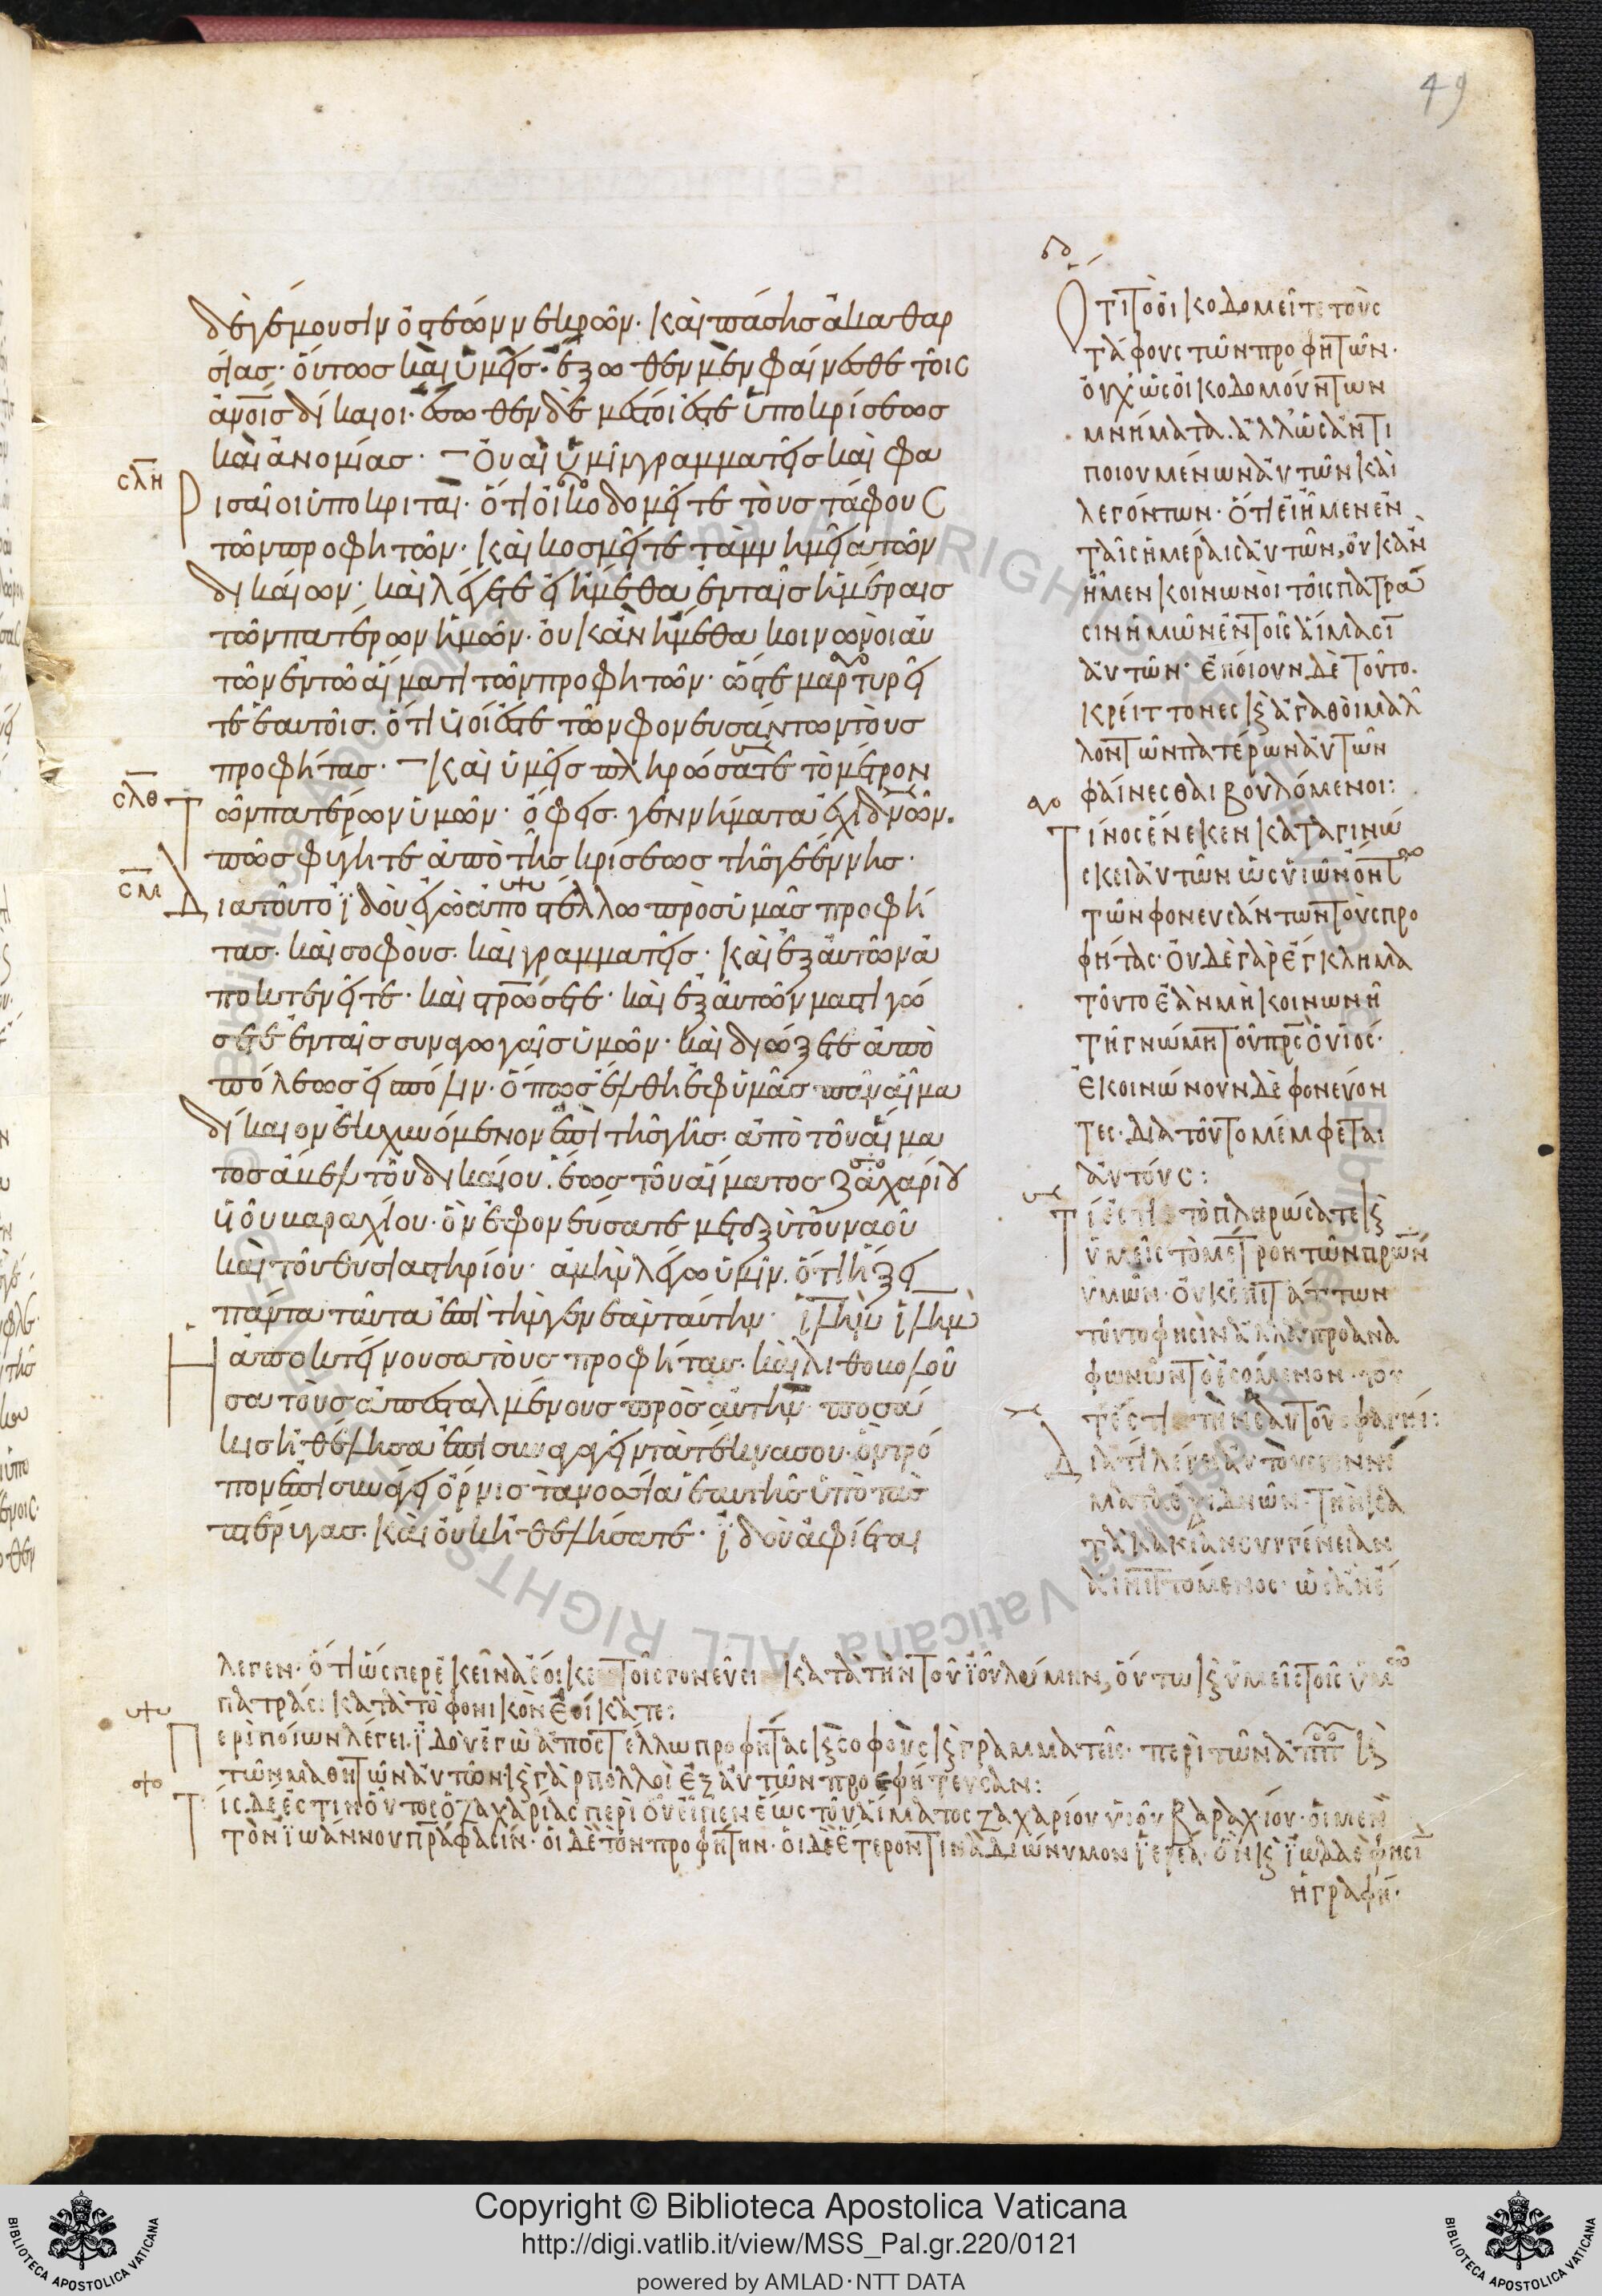 49
δὲ γέμουσιν ὀστέων νεκρῶν· καὶ πάσης ἀκαθαρ
σίας· οὕτως καὶ ὑμεῖς· ἔξωθεν μὲν φαίνεσθε τοῖς
ἀνοις δίκαιοι· ἔσωθεν δὲ μεστοί ἐστε ὑποκρίσεως
καὶ ἀνομίας· Οὐαὶ ὑμῖν γραμματεῖς καὶ φα
σλη
ρισαῖοι ὑποκριταί· ὅτι οἰκοδομεῖτε τοὺς τάφους
τῶν προφητῶν· καὶ κοσμεῖτε τὰ μνημεῖα τῶν
δικαίων· καὶ λέγετε εἰ ἤμεθα ἐν ταῖς ἡμέραις
τῶν πατέρων ἡμῶν· οὐκ ἂν ἤμεθα κοινωνοὶ αὐ
τῶν ἐν τῶ αἵματι τῶν προφητῶν· ὥστε μαρτυρεῖ
τε ἑαυτοῖς· ὅτι υἱοί ἐστε τῶν φονευσάντων τοὺς
προφήτας· Καὶ ὑμεῖς πληρώσατε τὸ μέτρον
σλθ
τῶν πατέρων ὑμῶν· ὄφεις· γεννήματα ἐχιδνῶν.
πῶς φύγητε ἀπὸ τῆς κρίσεως τῆς γεέννης·
σμ
Διατοῦτο ἰδοὺ ἐγὼ ἀποστέλλω πρὸς ὑμᾶς προφή
τας· καὶ σοφοὺς· καὶ γραμματεῖς· καὶ ἐξ αὐτῶν ἀ
ποκτενεῖτε· καὶ στρώσετε· καὶ ἐξ αὐτῶν μαστιγώ
σετε ἐν ταῖς συναγωγαῖς ὑμῶν· καὶ διώξετε ἀπὸ
πόλεως εἰς πόλιν· ὅπως ἔλθη ἐφ ὑμᾶς πᾶν αἷμα
δίκαιον ἐκχυνόμενον ἐπὶ τῆς γῆς· ἀπὸ τοῦ αἵμα
τος ἄμελ τοῦ δικαίου· ἕως τοῦ αἵματος Ζαχαρίου
υἱοῦ βαραχίου· ὃν ἐφονεύσατε μεταξὺ τοῦ ναοῦ
καὶ τοῦ θυσιαστηρίου· ἀμὴν λέγω ὑμῖν· ὅτι ἥξει
πάντα ταῦτα ἐπὶ τὴν γενεὰν ταύτην· ἰλημ ἰλημ
Ἡ ἀποκτείνουσα τοὺς προφήτας· καὶ λιθοβολοῦ
σα τοὺς ἀπεσταλμένους πρὸς αὐτήν· ποσά
κις ἠθέλησα ἐπισυναγαγεῖν τὰ τέκνα σου· ὃν τρό
πον ἐπισυνάγει ὄρνις τὰ νοσσία ἑαυτῆς ὑπὸ τὰς
πτέρυγας· καὶ οὐκ ἠθελήσατε· ἰδοὺ ἀφίεται
Ὅτι τὸ οἰκοδομεῖτε τοὺς
τάφους τῶν προφητῶν·
οὐχ ὡς οἰκοδομούντων
μνήματα· ἀλλ ὡς ἀντι
ποιουμένων αὐτῶν καὶ
λεγόντων· ὅτι εἰ ἦμεν ἐν
ταῖς ἡμέραις αὐτῶν, οὐκ ἂν
ἦμεν κοινωνοὶ τοῖς πατρά
σιν ἡμῶν ἐν τοῖς αἵμασι
αὐτῶν· ἐποίουν δὲ τοῦτο·
κρείττονες κ ἀγαθοὶ μᾶλ
λον τῶν πατέρων αὐτῶν
φαίνεσθαι βουλόμενοι:
Τίνος ἕνεκεν καταγινώ
σκει αὐτῶν ὡς υἱῶν ὄντ
τῶν φονευσάντων τοὺς προ
φήτας· οὐδὲ γὰρ ἔγκλημα
τοῦτο ἐὰν μὴ κοινωνῆ
τῆ γνώμη τοῦ πρς ὁ υἱός·
Ἐκοινώνουν δὲ φονεύον
τες· διὰ τοῦτο μέμφεται
αὐτούς:
Τί ἐστι τὸ πληρώσατε κ
ὑμεῖς τὸ μέτρον τῶν πρων
ὑμῶν· οὐκ ἐπιτάττων
τοῦτο φησὶν ἀλλὰ προανα
φωνῶν τὸ ἐσόμενον
Διατί λέγει αὐτοὺς γεννή
ματα ἐχιδνῶν· τὴν κα
τὰ κακίαν συγγένειαν
αἰνιττόμενος
λεγεν· ὅτι ὥσπερ ἐκεῖνα ἔοικε τοῖς γονεῦσι κατὰ τὴν τοῦ ἰοῦ λύμην, οὕτω κ ὑμεῖς τοῖς ὑμ
πατράσι κατὰ τὸ φονικὸν ἐοίκατε:
Περὶ ποίων λέγει· ἰδοὺ ἐγὼ ἀποστέλλω προφήτας κ σοφοὺς κ γραμματεῖς· περὶ τῶν ἀπ κ
τῶν μαθητῶν αὐτῶν· κ γὰρ πολλοὶ ἐξ αὐτῶν προεφήτευσαν:
Τίς δέ ἐστιν οὗτος ὁ Ζαχαρίας περὶ οὗ εἶπεν ἕως τοῦ αἵματος Ζαχαρίου υἱοῦ Βαραχίου· οἱ μὲν
τὸν ἰωάννου πρα φασίν· οἱ δὲ τὸν προφήτην· οἱ δὲ ἕτερον τινὰ διώνυμον ἱερέα· ὃν κ ἰωδαὲ φησὶ
ἡ γραφή·
Copyright © Biblioteca Apostolica Vaticana
http://digi.vatlib.it/view/MSS_Pal.gr.220/0121
powered by AMLAD·NTT DATA
BIBLIOTECA APOSTOLICA VATICANA
BIBLIOTECA APOSTOLICA VATICANA